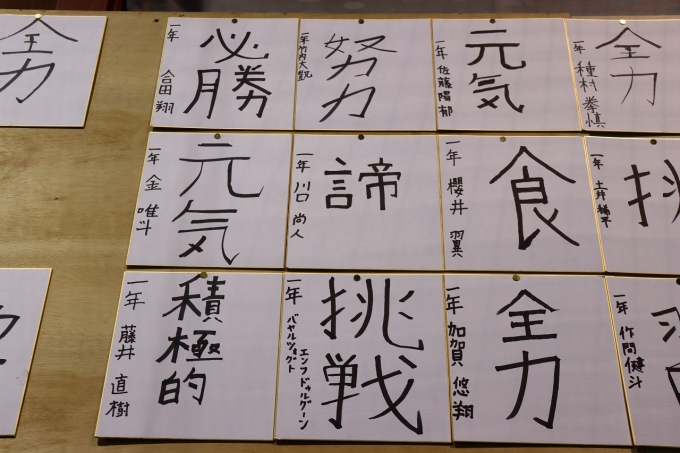 全力
必勝
一年 合田 翔
努力
一年 竹内大凱
元気
一年 佐藤陽郁
全力
一年 種村拳慎
元気
一年 金 唯斗
諦
一年 川口 尚人
食
一年 櫻井 翼
挑
一年
積極的
一年 藤井 直樹
挑戦
一年 バヤルツォグト
エンフドゥルグーン
全力
一年 加賀 悠翔
一年 作間健斗